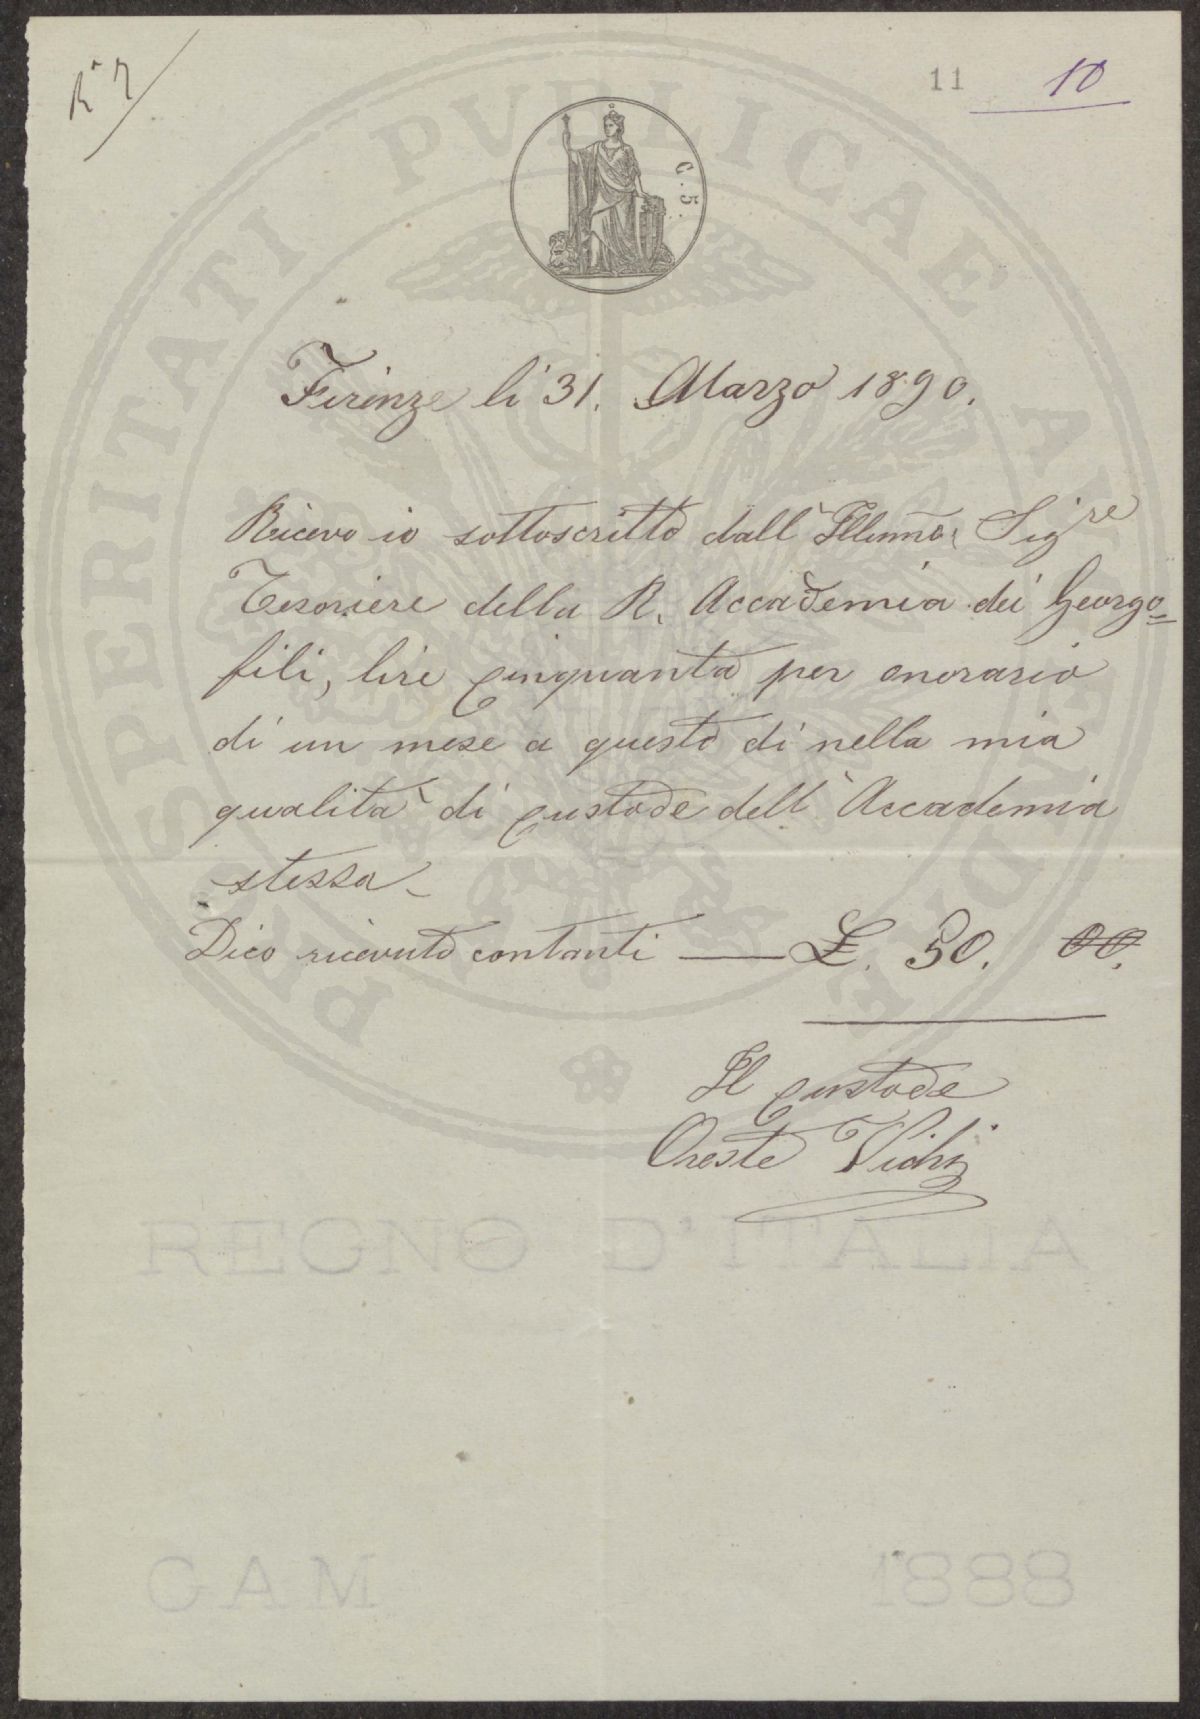 11 10
C. 5.
PROSPERITATI PVBLICAE AVGENDAE
Firenze li 31. Marzo 1890.
Ricevo io sottoscritto dall' Illmo. Sigre
Tesoriere della R. Accademia dei Georgo=
fili, lire cinquanta per onorario
di un mese a questo di nella mia
qualita' di custode dell' Accademia
stessa_
Dico ricevuto contanti — £. 50. 00.
Il custode
Oreste Vichi
REGNO D'ITALIA
GAM 1888